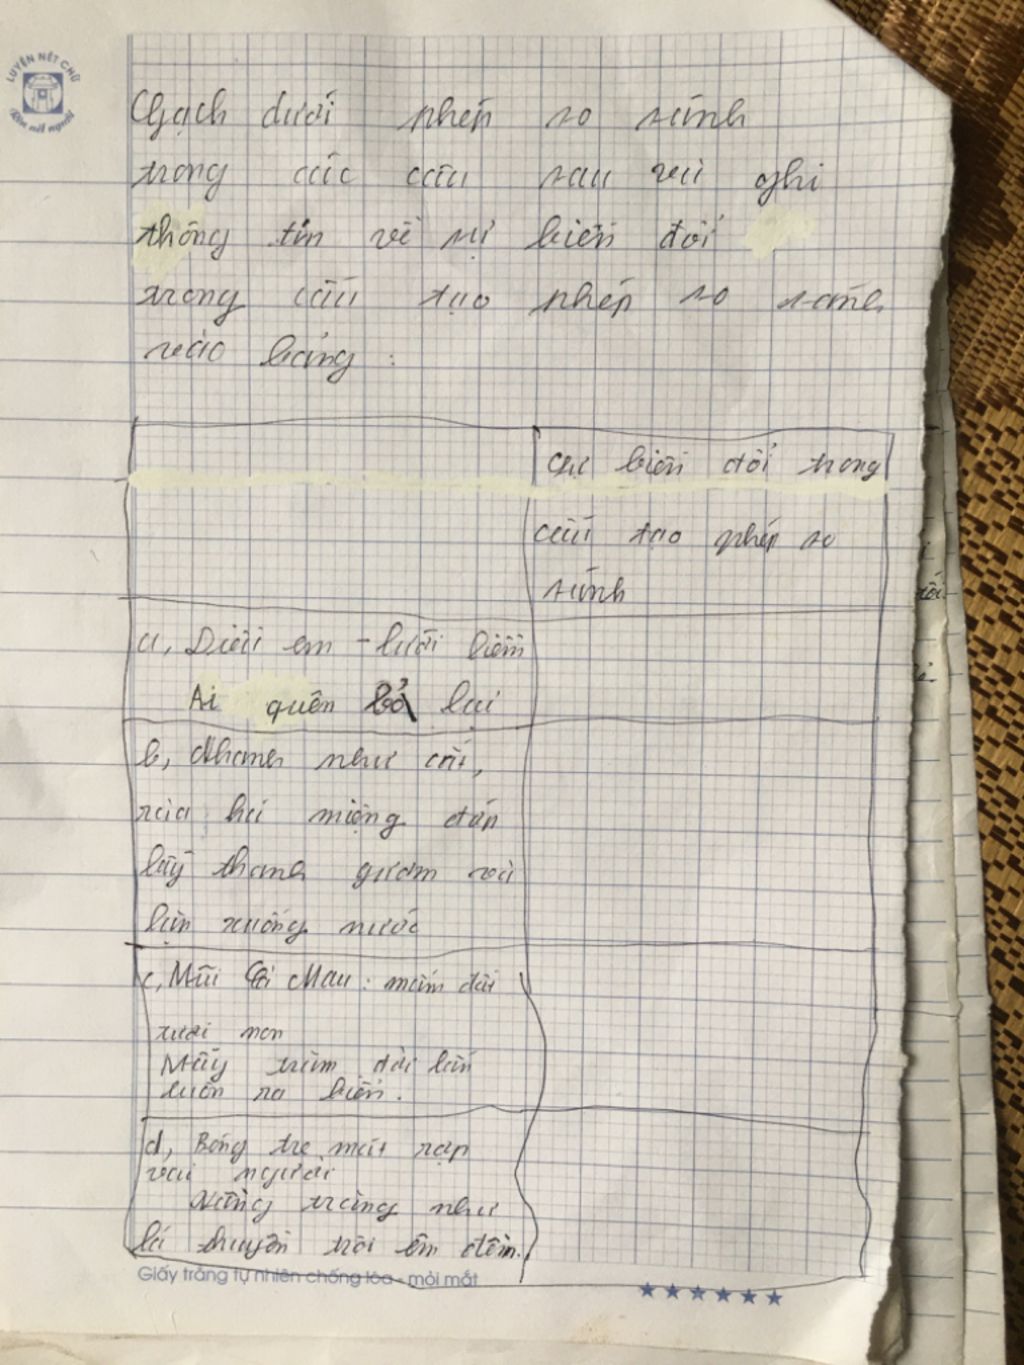 LUYỆN NÉT CHỮ
Rèn nết người
Gạch dưới phép so sánh
trong các câu sau và ghi
thông tin về sự biến đổi
trong cấu tạo phép so sánh
vào bảng :
Sự biến đổi trong
cấu tạo phép so
sánh
a, Diều em - lưỡi liềm
Ai quên bỏ lại
b, Nhanh như cắt,
rùa há miệng đớp
lấy thanh gươm và
lặn xuống nước
c, Mũi Cà Mau : mầm đất
tươi non
Mấy trăm đời lấn
luôn ra biển.
d, Bóng tre mát rợp
vai người
Vầng trăng như
lá thuyền trôi êm đềm.
Giấy trắng tự nhiên chống lóa - mỏi mắt